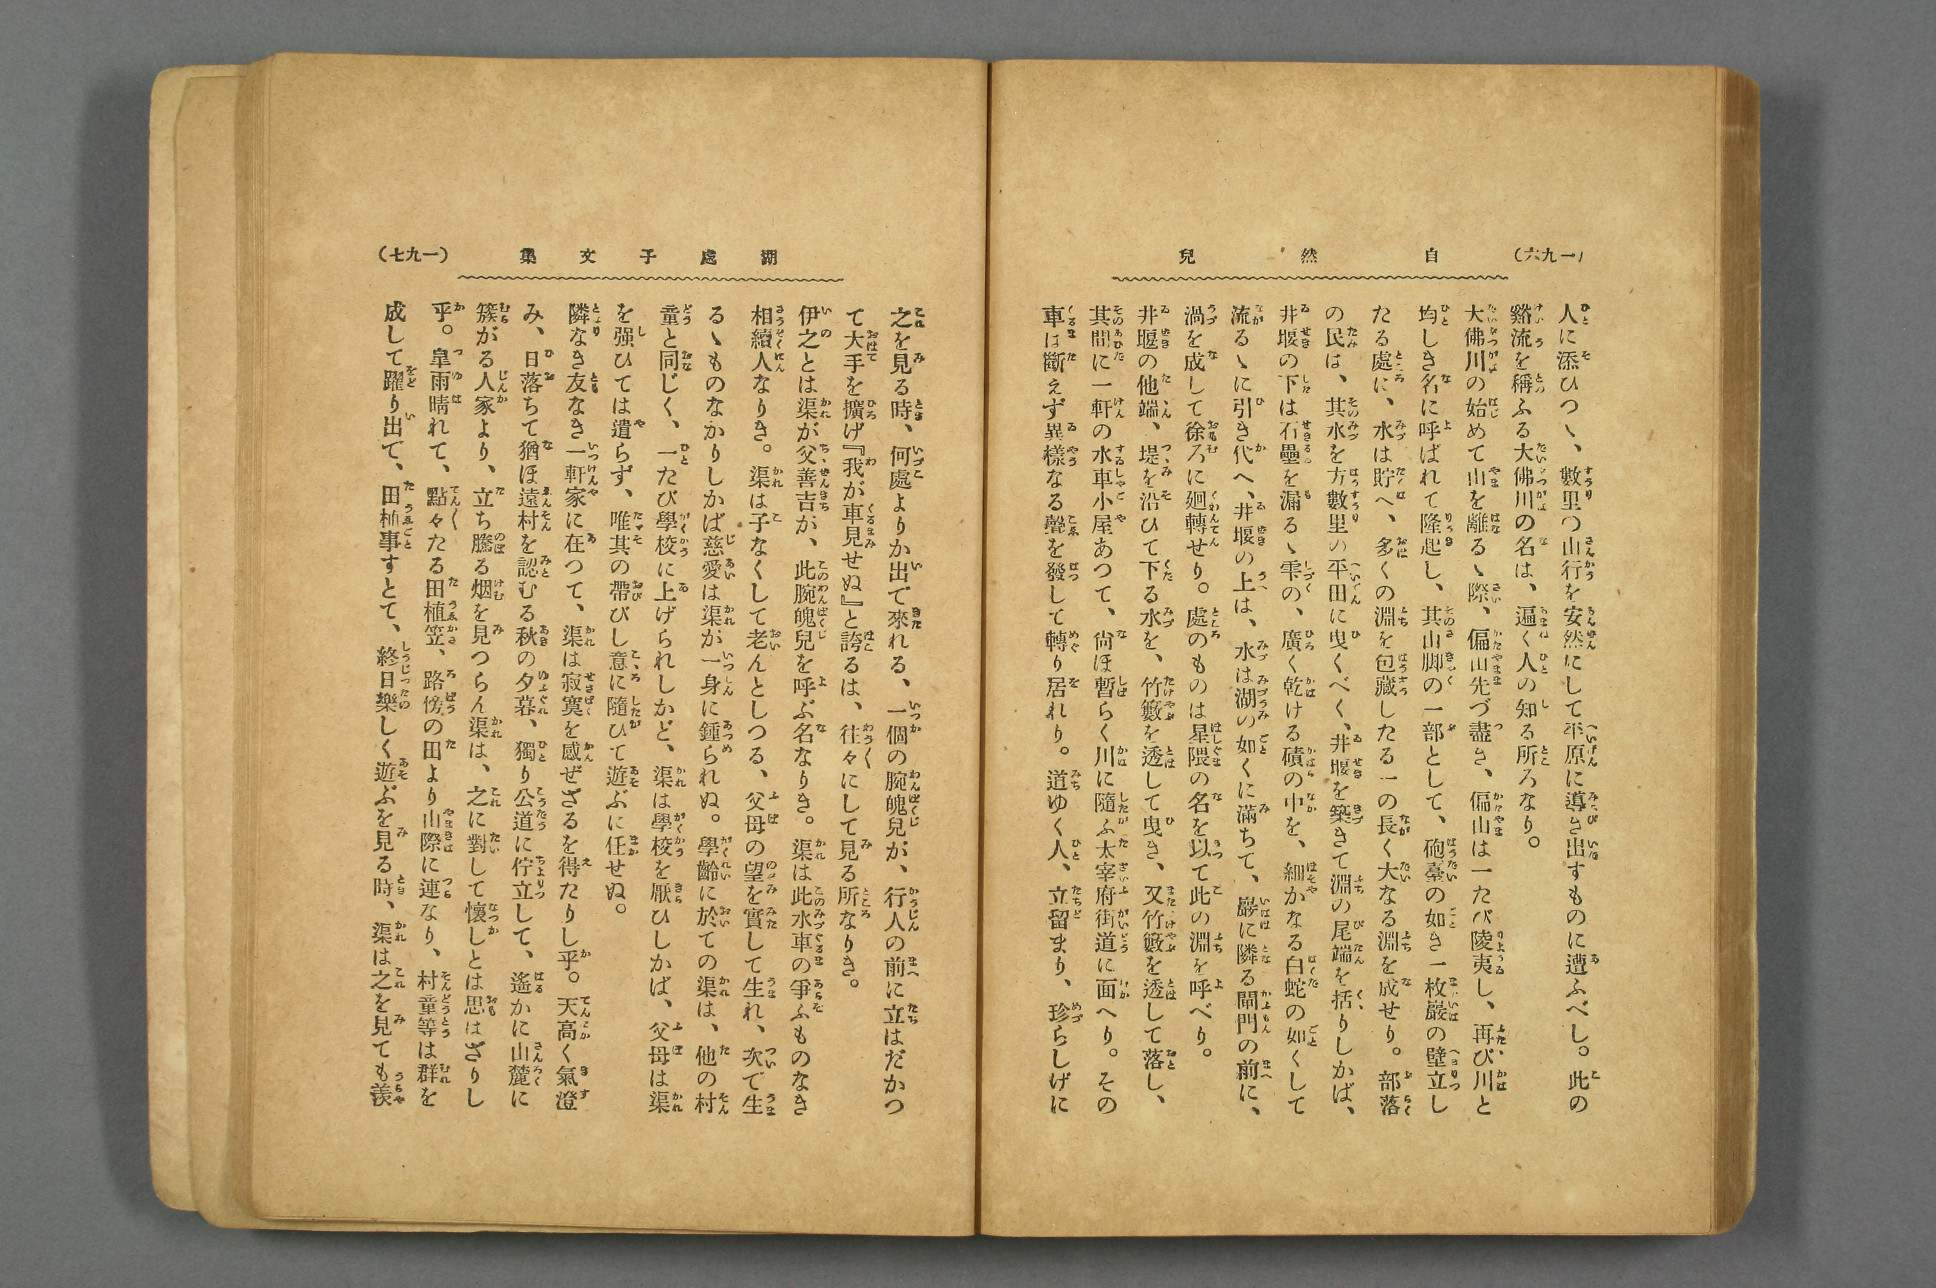 (一九六)
自然兒
人に添ひつゝ、數里の山行を安然にして平原に導き出すものに遭ふべし。此の
谿流を稱ふる大佛川の名は、遍く人の知る所ろなり。
大佛川の始めて山を離るゝ際、偏山先づ盡き、偏山は一たび陵夷し、再び川と
均しき名に呼ばれて隆起し、其山脚の一部として、砲臺の如き一枚巖の壁立し
たる處に、水は貯へ、多くの淵を包藏したる一の長く大なる淵を成せり。部落
の民は、其水を方數里の平田に曳くべく、井堰を築きて淵の尾端を括りしかば、
井堰の下は石壘を漏るゝ雫の、廣く乾ける磧の中を、細かなる白蛇の如くして
流るゝに引き代へ、井堰の上は、水は湖の如くに滿ちて、巖に隣る閘門の前に、
渦を成して徐ろに廻轉せり。處のものは星隈の名を以て此の淵を呼べり。
井堰の他端、堤を沿ひて下る水を、竹籔を透して曳き、又竹籔を透して落し、
其間に一軒の水車小屋あつて、尙ほ暫らく川に隨ふ太宰府街道に面へり。その
車は斷えず異樣なる聲を發して轉り居れり。道ゆく人、立留まり、珍らしげに
湖處子文集
(一九七)
之を見る時、何處よりか出で來れる、一個の腕魄兒が、行人の前に立はだかつ
て大手を擴げ『我が車見せぬ』と誇るは、往々にして見る所なりき。
伊之とは渠が父善吉が、此腕魄兒を呼ぶ名なりき。渠は此水車の爭ふものなき
相續人なりき。渠は子なくして老んとしつる、父母の望を實して生れ、次で生
るゝものなかりしかば慈愛は渠が一身に鍾られぬ。學齡に於ての渠は、他の村
童と同じく、一たび學校に上げられしかど、渠は學校を厭ひしかば、父母は渠
を强ひては遣らず、唯其の帶びし意に隨ひて遊ぶに任せぬ。
隣なき友なき一軒家に在つて、渠は寂寞を感ぜざるを得たりし乎。天高く氣澄
み、日落ちて猶ほ遠村を認むる秋の夕暮、獨り公道に佇立して、遙かに山麓に
簇がる人家より、立ち騰る烟を見つらん渠は、之に對して懷しとは思はざりし
乎。皐雨晴れて、點々たる田植笠、路傍の田より山際に連なり、村童等は群を
成して躍り出で、田植事すとて、終日樂しく遊ぶを見る時、渠は之を見ても羨